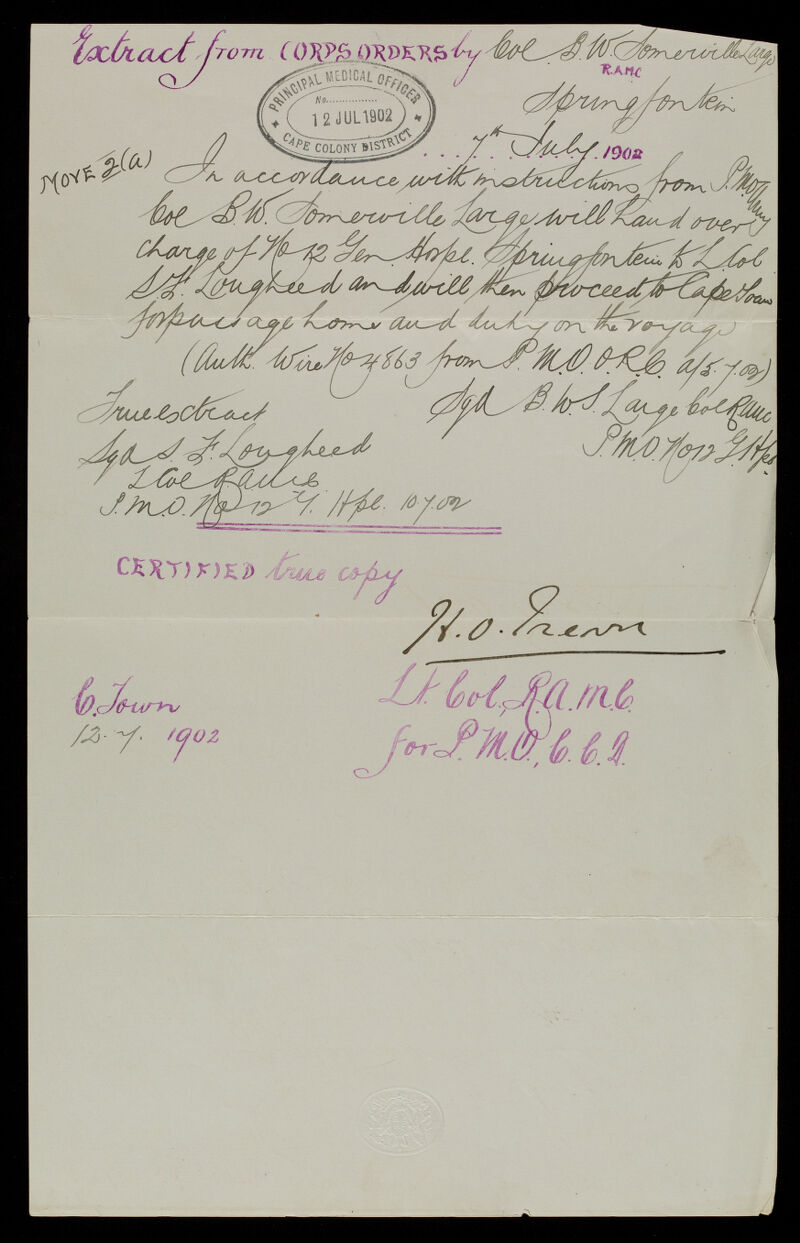 Extract from CORPS ORDERS by Col B.W. Somerville Large
R.A.M.C
Springfontein
PRINCIPAL MEDICAL OFFICER
No...............
12 JUL 1902
CAPE COLONY DISTRICT
7th July 1902
MOVE 2(a)
In accordance with instructions from P.M.O. Army
Col B.W. Somerville Large will hand over
charge of No 12 Gen. Hospl. Springfontein to L. Col
S.F. Lougheed and will then proceed to Cape Town
for passage home and duty on the voyage
(Auth. Wire No 4863 from P.M.O. O.R.C. d/5.7.02)
Sgd B.W.S. Large Col RAMC
P.M.O. No 12 G. Hpl.
True extract
Sgd S. F. Lougheed
L Col RAMC
P.M.O. No 12 G. Hpl. 10 7.02
CERTIFIED true copy
H.O. Trevor
Lt. Col. R.A.M.C.
for P.M.O., C.C.D.
C. Town
12.7. 1902